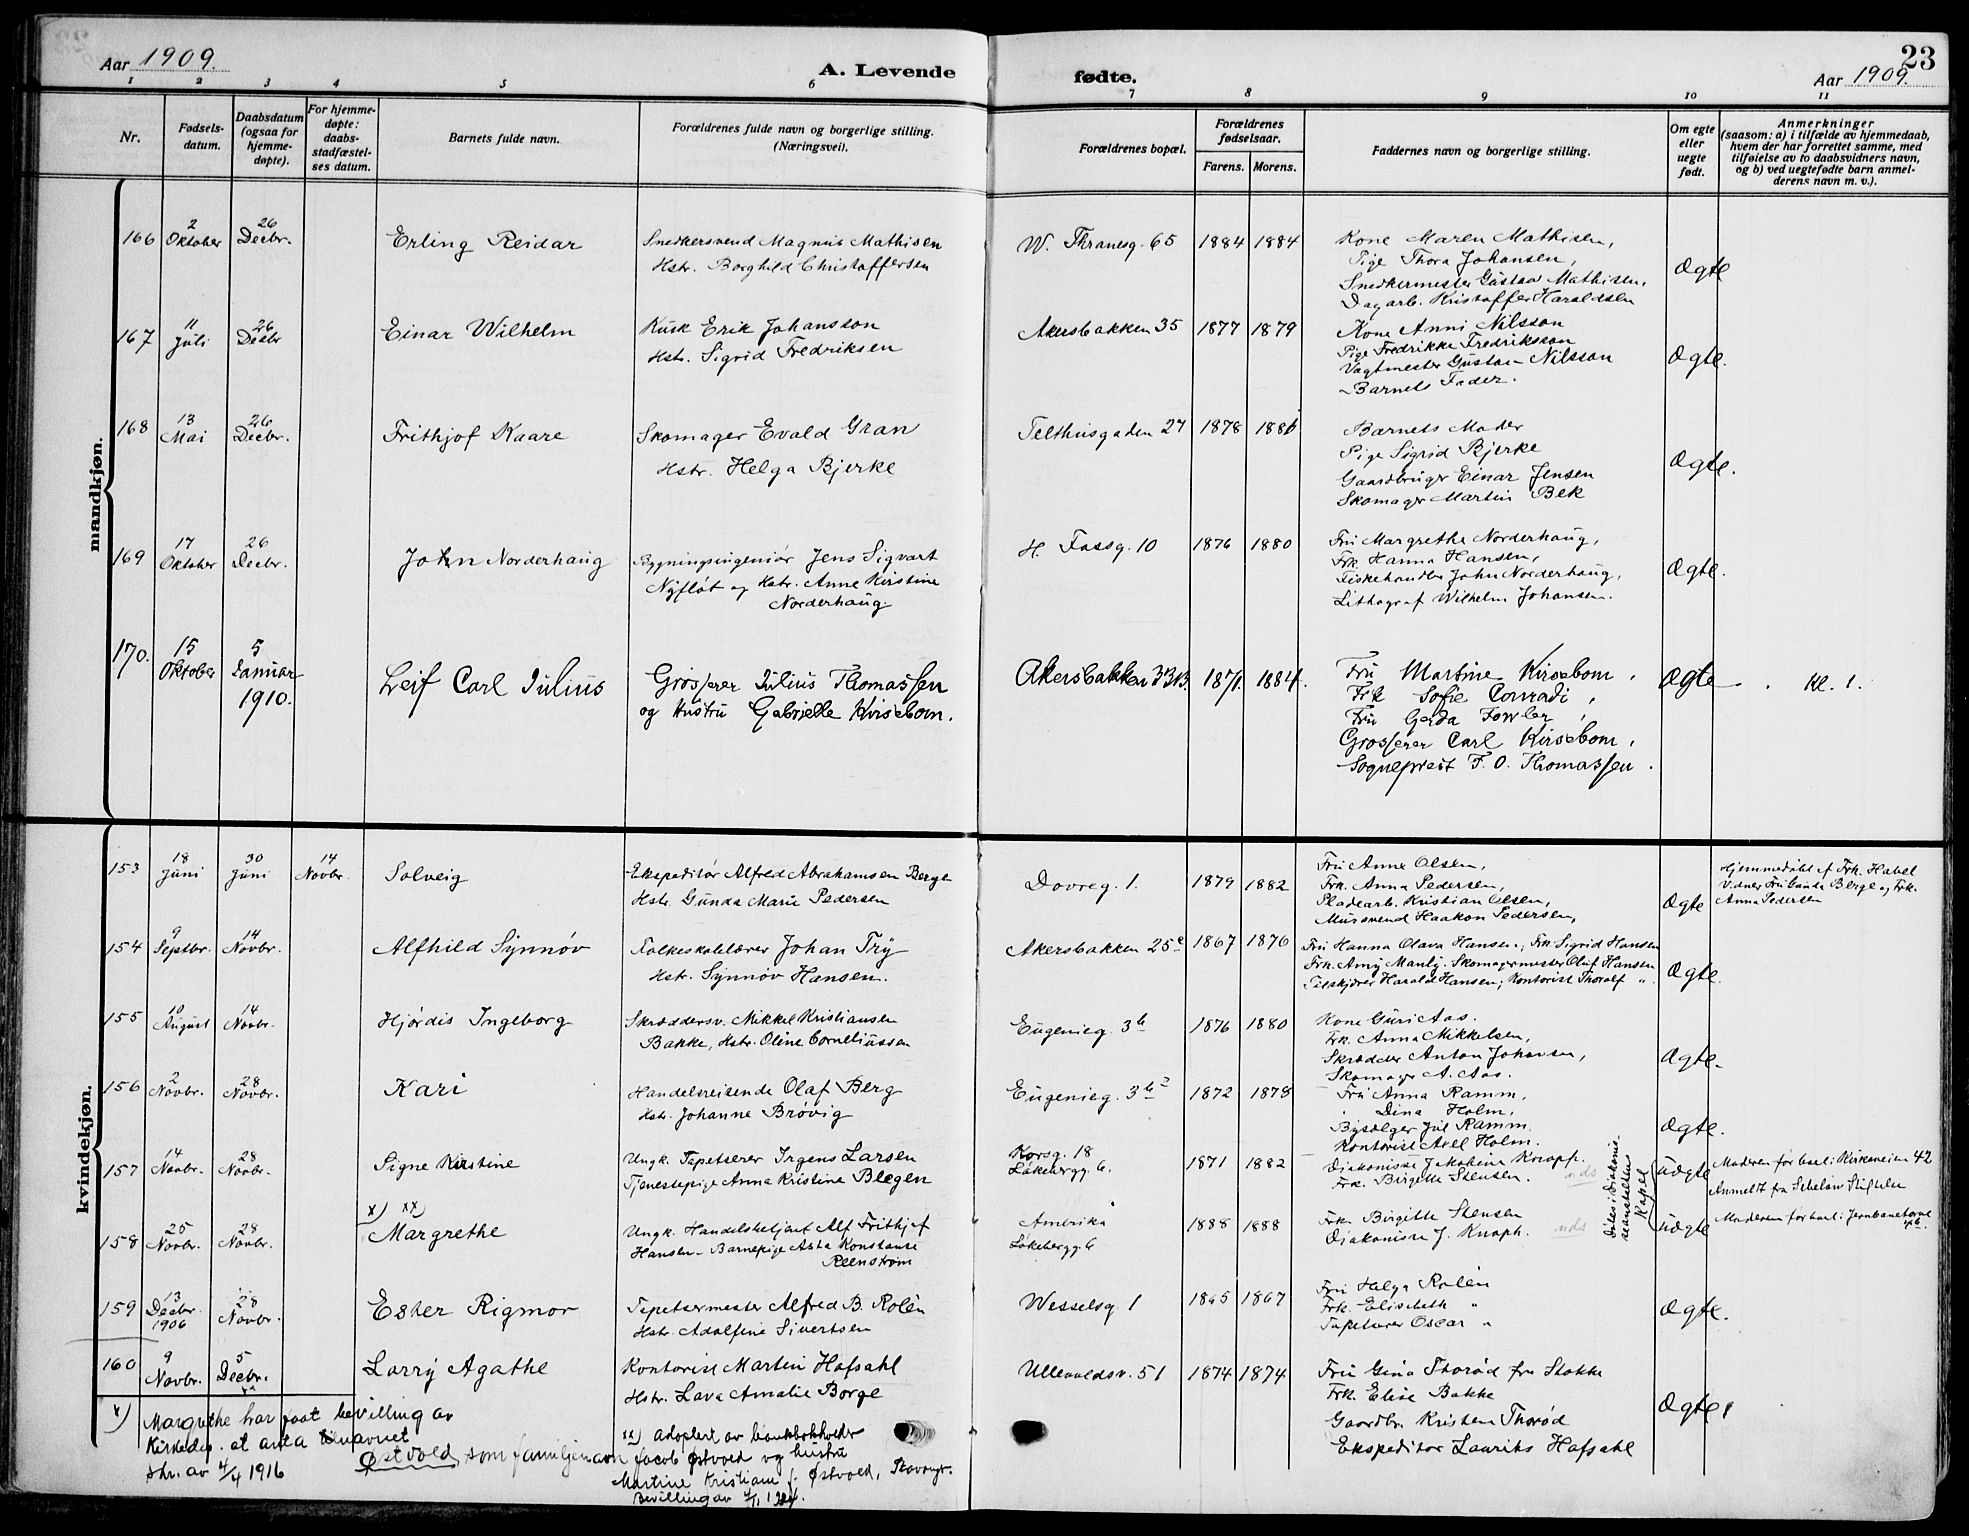 Aar 1909.
A. Levende fødte.
23
Aar 1909.
1 2 3 4 5 6 7 8 9 10 11
Nr.
Fødsels-
datum.
Daabsdatum
(ogsaa for
hjemme-
døpte).
For hjemme-
døpte:
daabs-
stadfæstel-
ses datum.
Barnets fulde navn.
Forældrenes fulde navn og borgerlige stilling.
(Næringsvei).
Forældrenes bopæl.
Forældrenes
fødselsaar.
Farens. Morens.
Faddernes navn og borgerlige stilling.
Om egte
eller
uegte
født.
Anmerkninger
(saasom: a) i tilfælde av hjemmedaab,
hvem der har forrettet samme, med
tilføielse av to daabsvidners navn,
og b) ved uegtefødte barn anmel-
derens navn m. v.).
mandkjøn.
166 2 Oktober 26 Decbr. Erling Reidar
Snedkersvend Magnus Mathisen
Hstr. Borghild Christoffersen
W. Thranesg. 65 1884 1884
Kone Maren Mathisen,
Pige Thora Johansen,
Snedkermester Gustav Mathisen,
Dagarb. Kristoffer Haraldsen
Ægte
167 11 Juli 26 Decbr Einar Wilhelm
Kusk Erik Johansson
Hstr. Sigrid Fredriksen
Akersbakken 35 1877 1879
Kone Anni Nilsson
Pige Fredrikke Fredriksson
Vagtmester Gustav Nilsson
Barnets Fader.
Ægte.
168 13 Mai 26 Decbr. Frithjof Kaare
Skomager Evald Gran
Hstr. Helga Bjerke
Telthusgaden 27 1878
Barnets Moder
Pige Sigrid Bjerke
Gaardbruger Einar Jensen
Skomager Martin Bek
Ægte.
169 17 Oktober 26 Decbr. John Norderhaug
Bygningsingeniør Jens Sigvart
Nyfløt og Hstr. Anne Kirstine
Norderhaug.
H. Fossg. 10 1876 1880
Fru Margrethe Norderhaug,
Frk. Hanna Hansen,
Fiskehandler John Norderhaug,
Lithograf Wilhelm Johansen.
Ægte.
170. 15 Oktober 5 Januar 1910. Leif Carl Julius
Grosserer Julius Thomassen
og Hustru Gabrielle Kirsebom.
Akersbakken 33B. 1871. 1884.
Fru Martine Kirsebom,
Frk Sofie Conradi,
Fru Gerda Fowler,
Grosserer Carl Kirsebom,
Sogneprest F. O. Thomassen.
Ægte. Kl. 1.
kvindekjøn.
153 18 Juni 30 Juni 14 Novbr. Solveig
Ekspeditør Alfred Abrahamsen Berge
Hstr. Gunda Marie Pedersen
Dovreg. 1. 1879 1882
Fru Anne Olsen,
Frk. Anna Pedersen,
Pladearb. Kristian Olsen,
Mursvend Haakon Pedersen,
Ægte
Hjemmedøbt af Frk. Habel
Vidner Fru Gunda Berge og Frk.
Anna Pedersen
154 9 Septbr. 14 Novbr. Alfhild Synnøv
Folkeskolelærer Johan Try
Hstr. Synnøv Hansen.
Akersbakken 25c 1867 1876
Fru Hanna Olava Hansen; Frk. Sigrid Hansen
Frk. Amy Manly. Skomagermester Oluf Hansen
Tilskjærer Harald Hansen; Kontorist Thoralf "
Ægte.
155 10 August 14 Novbr. Hjørdis Ingeborg
Skræddersv. Mikkel Kristiansen
Bakke, Hstr. Oline Corneliussen
Eugenieg. 3b 1876 1880
Kone Guri Aas.
Frk. Anna Mikkelsen,
Skrædder Anton Johansen,
Skomager A. Aas.
Ægte.
156 2 Novbr. 28 Novbr. Kari
Handelsreisende Olaf Berg
Hstr. Johanne Brøvig
Eugenieg. 3b 1872 1878
Fru Anna Ramm,
Dina Holm,
Bysælger Jul Ramm
Kontorist Axel Holm.
Ægte.
157 14 Novbr. 28 Novbr. Signe Kirstine
Ungk. Tapetserer Jrgens Larsen
Tjenestepige Anna Kristine Blegen
Korsg. 18
Løkebergg. 6. 1871 1882
Diakonisse Jakobine Knapp.
Frk. Birgitte Stensen.
Døbt i Diakonis-
seanstaltens
Kapel
Uægte
Moderen før bosat: Kirkeveien 42
Anmeldt fra Sebelow Stiftelse
158 25 Novbr. 28 Novbr. x) xx) Margrethe
Ungk. Handelsbetjent Alf Frithjof
Hansen - Barnepige Asta Konstanse
Reenstrøm
Amerika
Løkebergg. 6 1888 1888
Frk. Birgitte Stensen
Diakonisse J. Knaph.
Uægte
Moderen før bosat: Jernbanetorvet
159 13 Decbr. 1906 28 Novbr. Esther Rigmor
Tapetsermester Alfred B. Rolén
Hstr. Adolfine Sivertsen
Wesselsg. 1 1865 1867
Fru Helga Rolén
Frk. Elisabeth "
Tapetserer Oscar "
Ægte.
160 9 Novbr. 5 Decbr. Larry Agathe
Kontorist Martin Hafsahl
Hstr. Lava Amalie Borge
Ullevoldsv. 51 1874 1874
Fru Gina Thorød fra Stokke
Frk. Elise Bakke
Gaardbr. Kristen Thorød
Ekspeditør Laurits Hafsahl
Ægte
x) Margrethe har faat bevilling av
Kirkedep. at anta navnet
Østvold som familjenavn
skr. av 4/4 1916
xx) Adoptert av bankbokholder
Jacob Østvold og hustru
Martine Kristiane f. Østvold, Stavanger.
Bevilling av